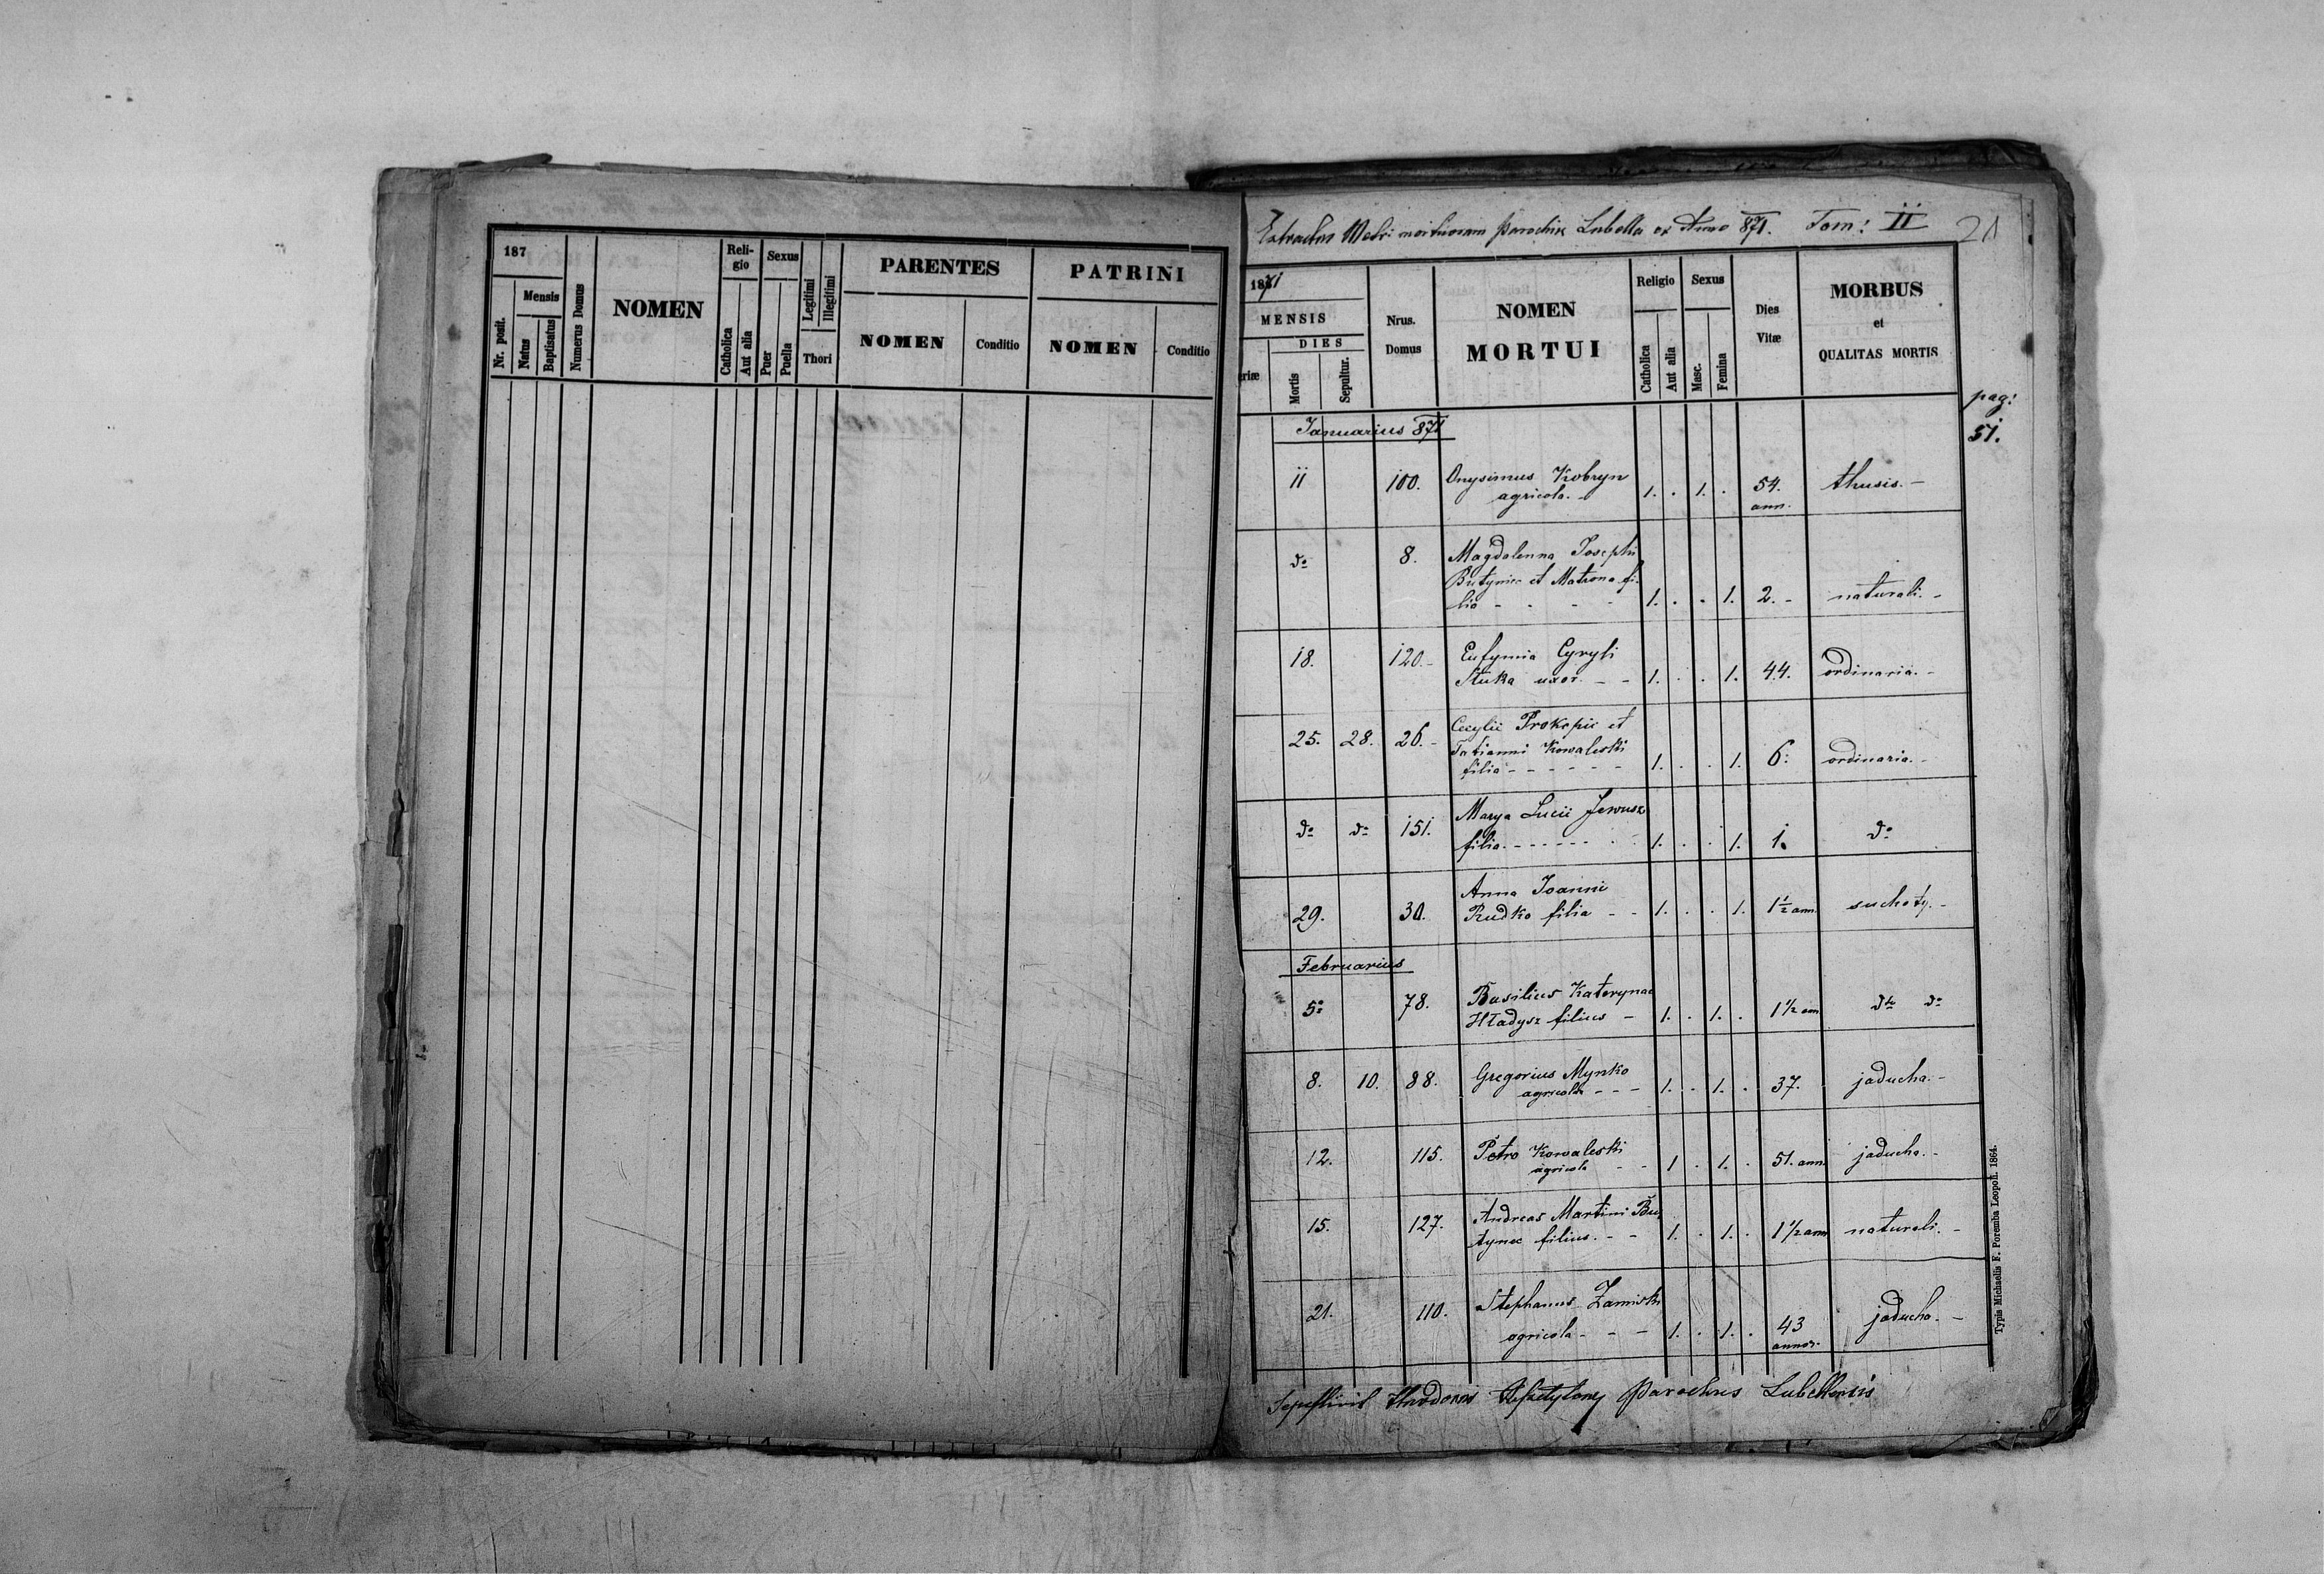 187
Nr. posit.
Mensis
Natus
Baptisatus
Numerus Domus
NOMEN
Reli-
gio
Catholica
Aut alia
Sexus
Puer
Puella
Legitimi
Illegitimi
Thori
PARENTES
NOMEN
Conditio
PATRINI
NOMEN
Conditio
Extractus Metr: mortuorum Parochiæ Lubella ex Anno 871. Tom: II
21
1871
MENSIS
DIES
eriæ
Mortis
Sepultur.
Nrus.
Domus
NOMEN
MORTUI
Religio
Catholica
Aut alia
Sexus
Masc.
Femina
Dies
Vitæ
MORBUS
et
QUALITAS MORTIS
pag:
51.
Januarius 871
11 100. Onysimus Kobryn
agricola. 1. . 1. . 54. thusis. -
ann.
do 8. Magdalenna Josephi
Butyniec et Matrona fi-
lia - - - - 1. . . 1. 2. - naturali. -
18. 120. - Eufymia Cyryli
Stuka uxor. - - 1. . . 1. 44. ordinaria. -
25. 28. 26. - Cecylii Prokopii et
Tatianni Kowaleski
filia - - - - - - 1. . . 1. 6. ordinaria. -
do do 151. Marya Lucii
filia. - - - - - - 1. . . 1. 1. do
29. 30. Anna Joanni
Rudko filia - - 1. . . 1. 1 1/2 ann. suchoty. -
Februarius
5. 78. Basilius Katerynae
Hładysz filius - 1. . 1. . 1 1/2 ann do do
8. 10. 88. Gregorius Mynko
agricola - - - 1. . 1. . 37. jaducha. -
12. 115. Petro Kowaleski
agricola - - 1 . 1. . 51. ann. jaducha. -
15. 127. Andreas Martini Bu-
tynec filius. - - 1. . 1. . 1 1/2 ann naturali. -
21. 110. Stephanus Zamiski
agricola - - - 1. . 1. . 43 jaducha. -
annor.
Sepelivit Parochus Lubellensis
Typis Michaelis F. Poremba Leopoli. 1864.